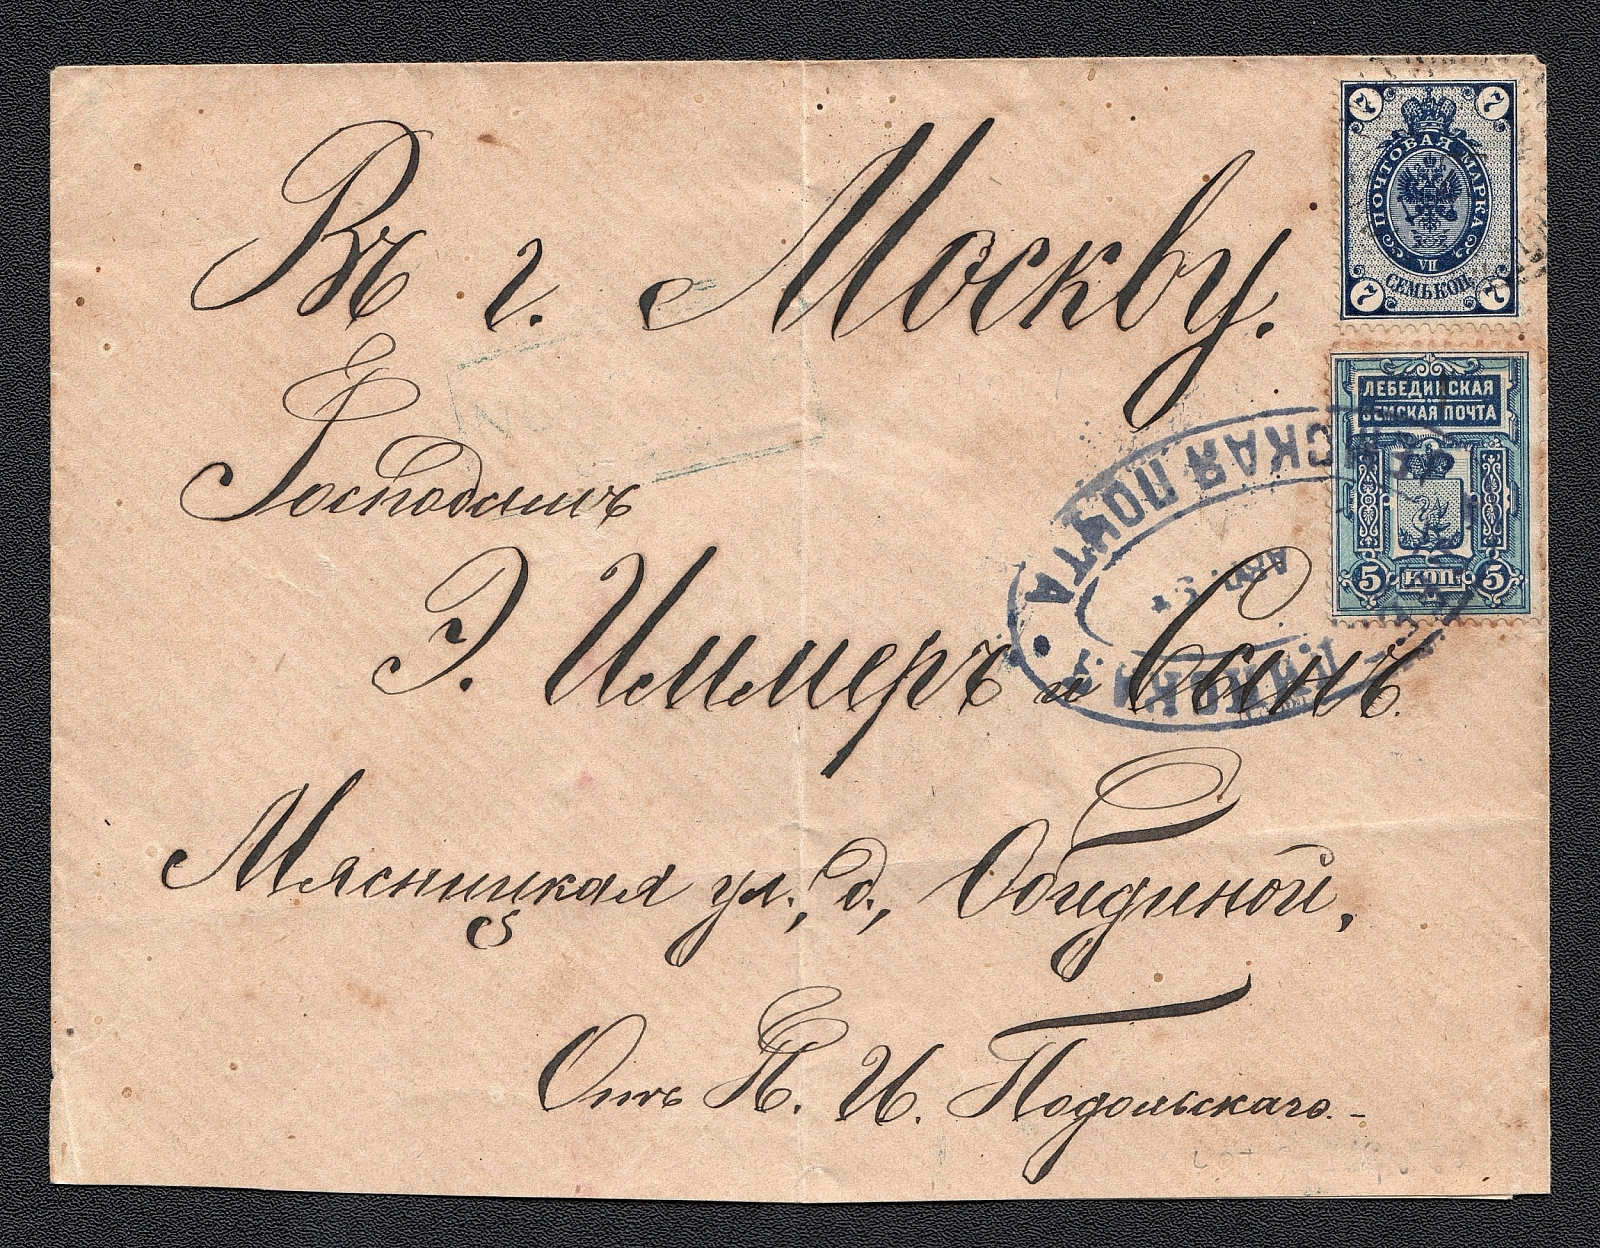 Въ г. Москву.
Господамъ
Э. Иммеръ и Сынъ.
Мясницкая ул., д., Обидиной,
Отъ П. И. Подольскаго.-
7 7
ПОЧТОВАЯ МАРКА
VII
СЕМЬ КОП.
7 7
ЛЕБЕДИНСКАЯ
ЗЕМСКАЯ ПОЧТА
5 КОП. 5
СКАЯ ПОЧТА